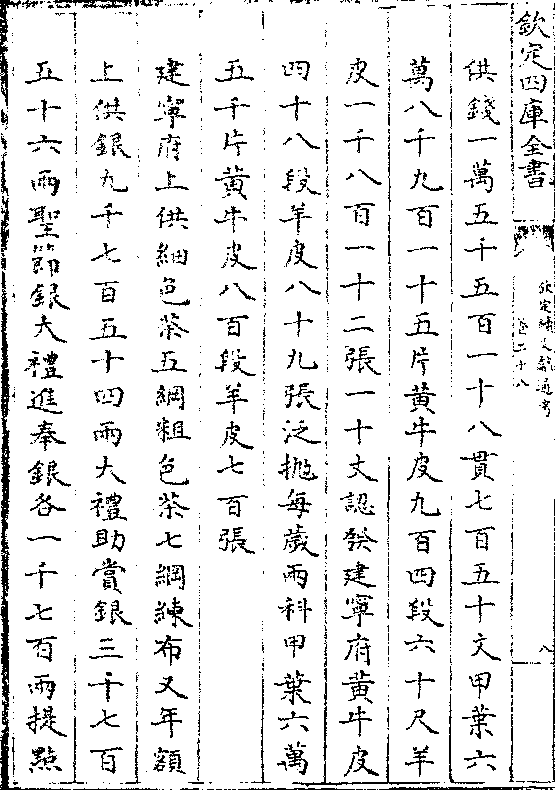 欽定四庫全書
欽定續文獻通考
卷二十八
八
供錢一萬五千五百一十八貫七百五十文甲葉六
萬八千九百一十五片黄牛皮九百四段六十尺羊
皮一千八百一十二張一十文認發建寧府黄牛皮
四十八段羊皮八十九張泛抛每歲兩科甲葉六萬
五千片黄牛皮八百段羊皮七百張
建寧府上供細色茶五綱粗色茶七綱練布又年額
上供銀九千七百五十四兩大禮助賞銀三千七百
五十六兩聖節銀大禮進奉銀各一千七百兩提點